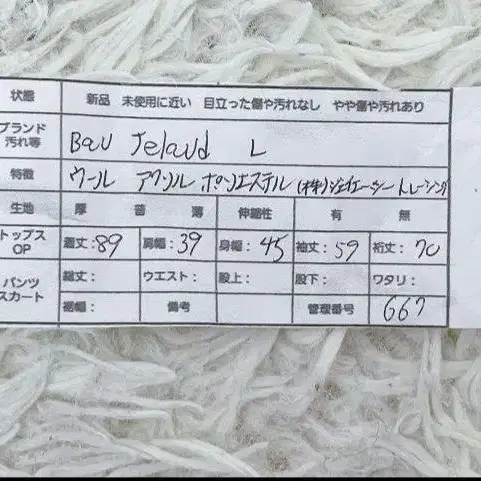 状態 新品 未使用に近い 目立った傷や汚れなし やや傷や汚れあり
ブランド 汚れ等 Bau Jelaud L
特徴 ウール アクリル ポリエステル (株)ジェイエーシートレーシング
生地 厚 普 薄 伸縮性 有 無
トップス OP 着丈:89 肩幅:39 身幅:45 袖丈:59 裄丈:70
パンツ スカート 総丈: ウエスト: 股上: 股下: ワタリ:
裾幅: 備考 管理番号 667